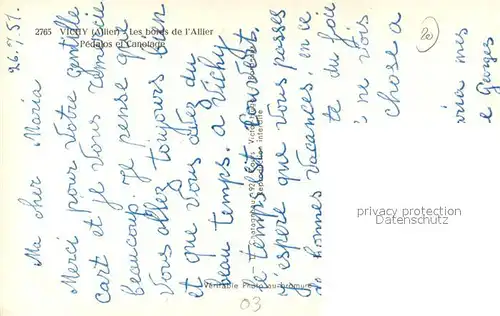 2765 VICHY (Allier) - Les bords de l'Allier
Pédalos et Canotage
26.7.51.
Ma cher Maria
Merci pour votre gentille
cart et je vous remercie
beaucoup. Je pense que
vous allez toujours bien
et que vous avez du
beau temps. a Vichy
le temps est couvert,
j'espere que vous passes
de bonnes vacances, en ce
te du foie
ne vois
chose a
mes
Georges
20
Reproduction interdite
Véritable Photo au bromure
03
privacy protection
Datenschutz